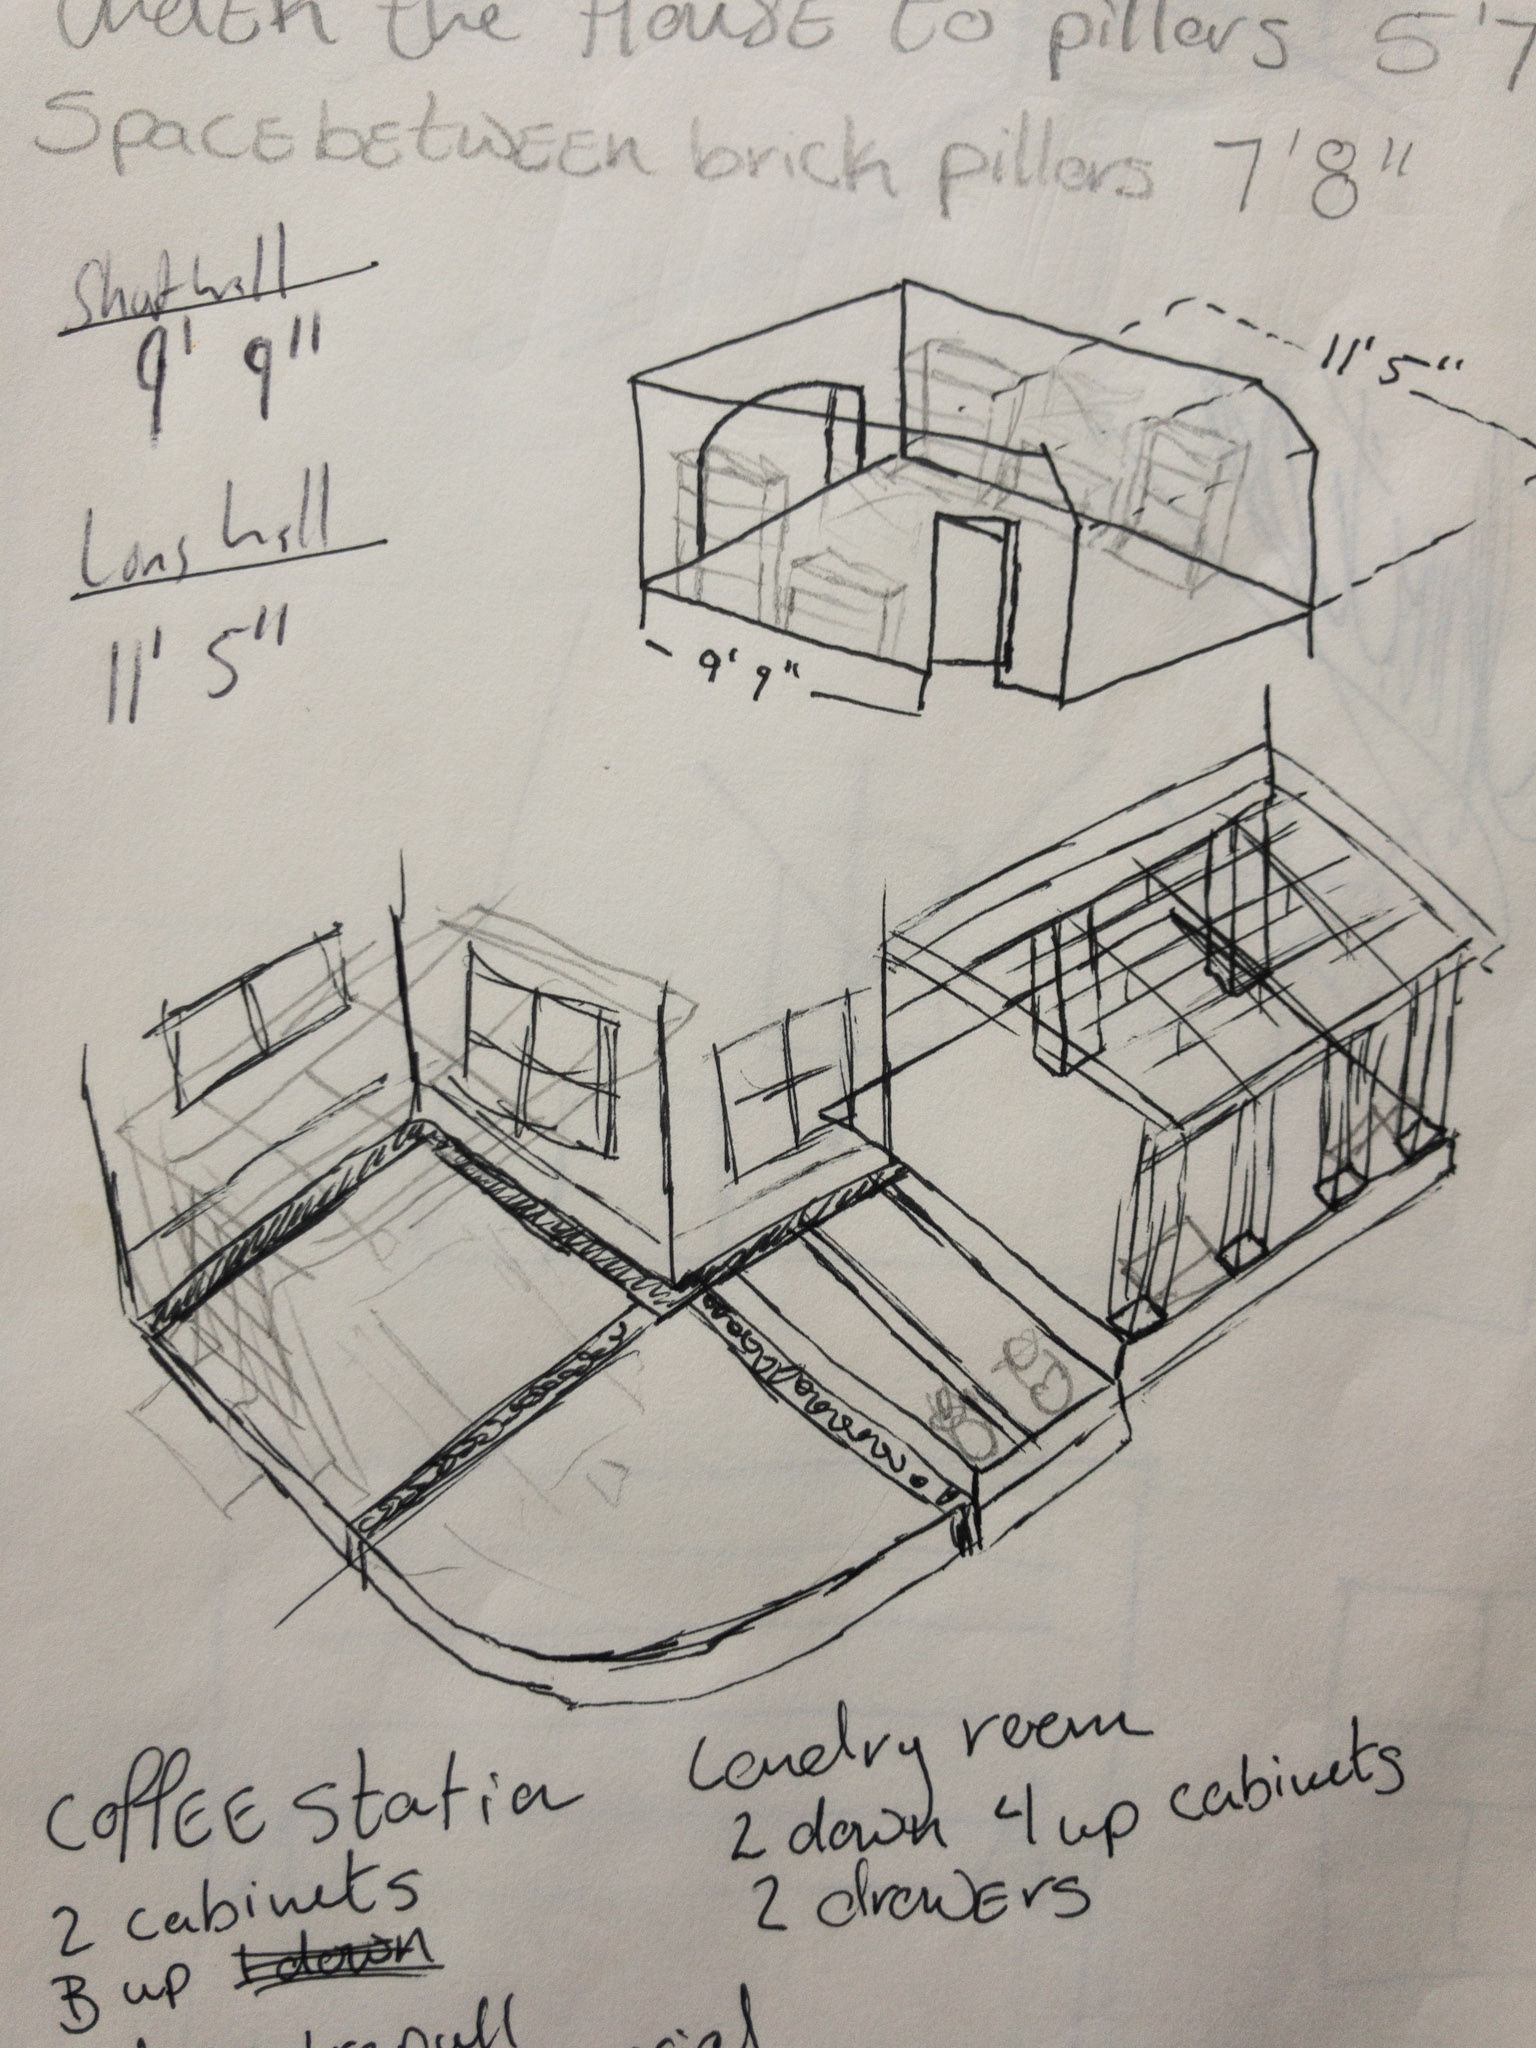 Under the House to pillars 5'7
Space between brick pillars 7'8"
Short Wall
9' 9"
Long Wall
11' 5"
11' 5"
9' 9"
Coffee Station
2 cabinets
B up
Landry room
2 down 4 up cabinets
2 drawers